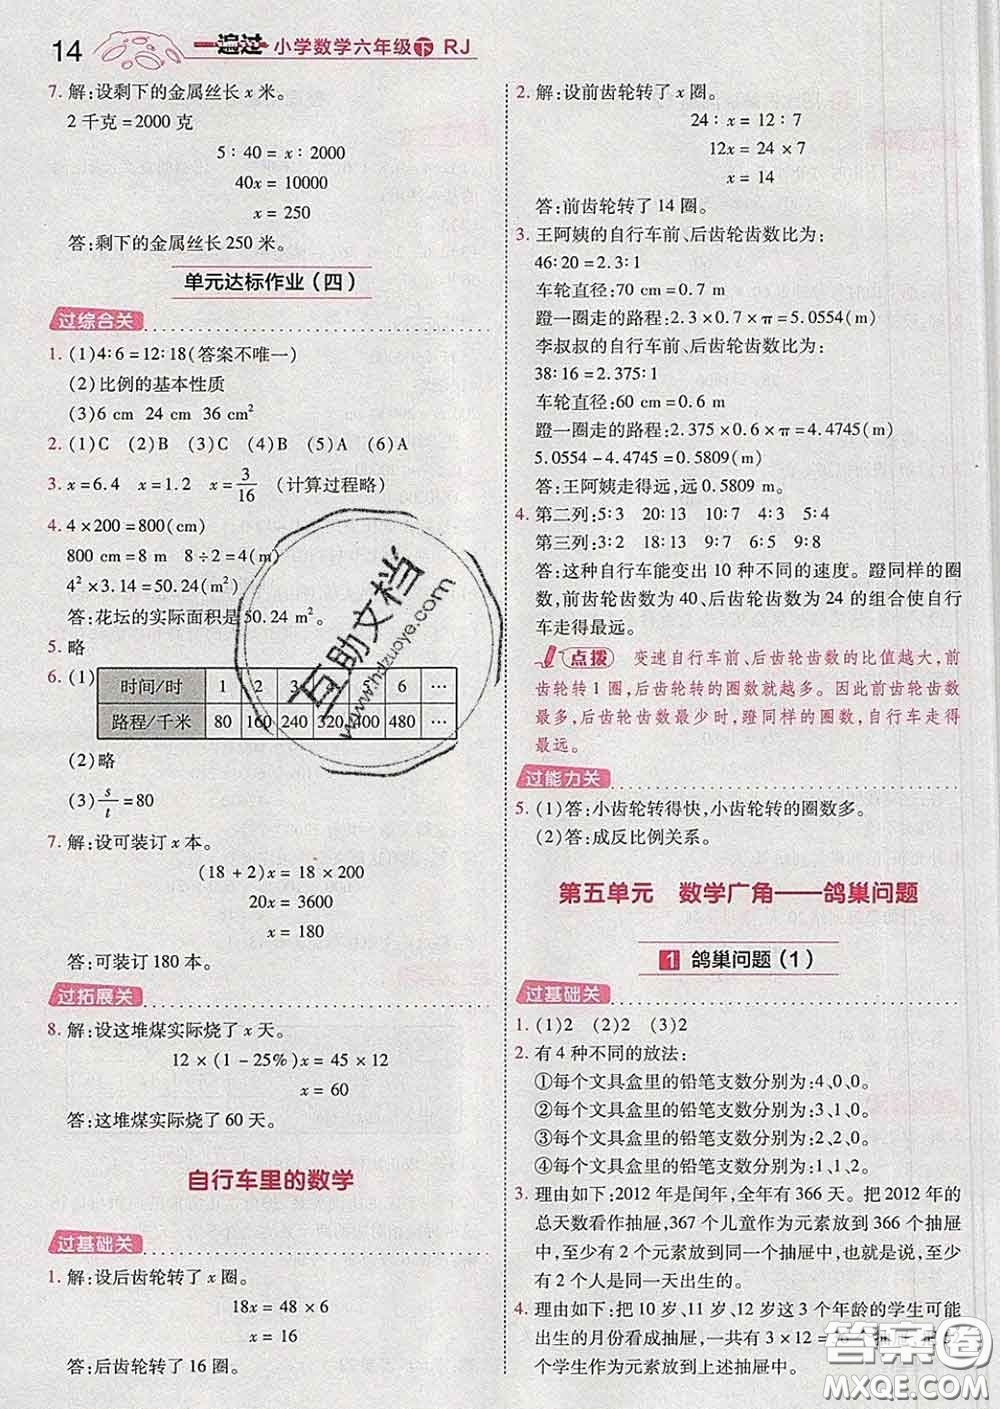 14 一遍过 小学数学六年级 下 RJ
7. 解:设剩下的金属丝长 x 米。
2 千克=2000 克
5∶40=x∶2000
40x=10000
x=250
答:剩下的金属丝长 250 米。
单元达标作业(四)
过综合关
1. (1)4∶6=12∶18(答案不唯一)
(2)比例的基本性质
(3)6 cm 24 cm 36 cm²
2. (1)C (2)B (3)C (4)B (5)A (6)A
3. x=6.4 x=1.2 x=3/16 (计算过程略)
4. 4×200=800(cm)
800 cm=8 m 8÷2=4(m)
4²×3.14=50.24(m²)
答:花坛的实际面积是50.24 m²。
5. 略
6. (1) 时间/时 1 2 3 6 …
路程/千米 80 160 240 320 400 480 …
(2)略
(3)s/t=80
7. 解:设可装订 x 本。
(18+2)x=18×200
20x=3600
x=180
答:可装订 180 本。
过拓展关
8. 解:设这堆煤实际烧了 x 天。
12×(1-25%)x=45×12
x=60
答:这堆煤实际烧了 60 天。
自行车里的数学
过基础关
1. 解:设后齿轮转了 x 圈。
18x=48×6
x=16
答:后齿轮转了 16 圈。
2. 解:设前齿轮转了 x 圈。
24∶x=12∶7
12x=24×7
x=14
答:前齿轮转了 14 圈。
3. 王阿姨的自行车前、后齿轮齿数比为:
46∶20=2.3∶1
车轮直径:70 cm=0.7 m
蹬一圈走的路程:2.3×0.7×π=5.0554(m)
李叔叔的自行车前、后齿轮齿数比为:
38∶16=2.375∶1
车轮直径:60 cm=0.6 m
蹬一圈走的路程:2.375×0.6×π=4.4745(m)
5.0554-4.4745=0.5809(m)
答:王阿姨走得远,远 0.5809 m。
4. 第二列:5∶3 20∶13 10∶7 4∶3 5∶4
第三列:3∶2 18∶13 9∶7 6∶5 9∶8
答:这种自行车能变出 10 种不同的速度。蹬同样的圈
数,前齿轮齿数为 40、后齿轮齿数为 24 的组合使自行
车走得最远。
点拨 变速自行车前、后齿轮齿数的比值越大,前
齿轮转 1 圈,后齿轮转的圈数就越多。因此前齿轮齿数
最多,后齿轮齿数最少时,蹬同样的圈数,自行车走得
最远。
过能力关
5. (1)答:小齿轮转得快,小齿轮转的圈数多。
(2)答:成反比例关系。
第五单元 数学广角——鸽巢问题
1 鸽巢问题(1)
过基础关
1. (1)2 (2)2 (3)2
2. 有 4 种不同的放法:
①每个文具盒里的铅笔支数分别为:4、0、0。
②每个文具盒里的铅笔支数分别为:3、1、0。
③每个文具盒里的铅笔支数分别为:2、2、0。
④每个文具盒里的铅笔支数分别为:1、1、2。
3. 理由如下:2012 年是闰年,全年有 366 天。把 2012 年的
总天数看作抽屉,367 个儿童作为元素放到 366 个抽屉
中,至少有 2 个元素放到同一个抽屉中,也就是说,至少有
2 个人是同一天出生的。
4. 理由如下:把 10 岁、11 岁、12 岁这 3 个年龄的学生可能
出生的月份看成抽屉,一共有 3×12=
个学生作为元素放到上述抽屉中。
互助文档
www.hdzuoye.com
答案圈
MXQE.COM